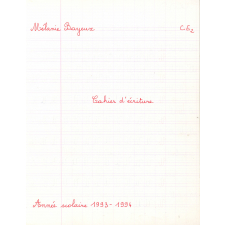 Mélanie Bayeux CE2
Cahier d'écriture
Année scolaire 1993-1994